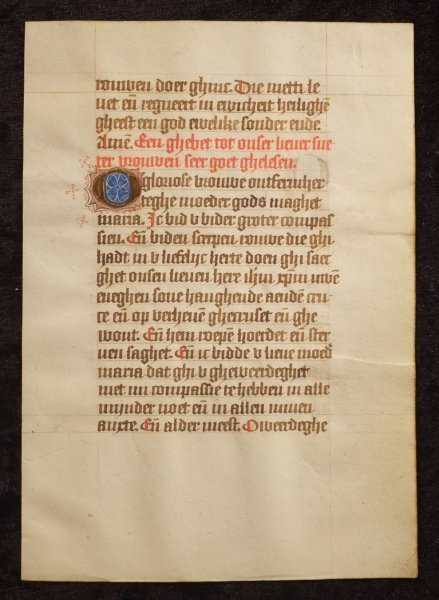 rouwen doer ghinc. Die metti le
uet eñ regneert in ewicheit heilighē
gheest een god ewelike sonder ende
Amē. Een ghebet tot onser lieuer sue
ter vrouwen seer goet ghelesen.
O gloriose vrouwe ontfermher
teghe moeder gods maghet
maria. Ic bid v bider groter compas
sien. Eñ biden scerpen rouwe die ghi
hadt in v liefelijc herte doen ghi saet
ghet onsen lieuen here ihm xpm uwē
eneghen sone hanghende aendē cru
ce eñ op verheuē ghecruset eñ ghe
wont. Eñ hem roepē hoerdet eñ ster
uen saghet. Eñ ic bidde v lieue moed
maria dat ghi v gheweerdeghet
met mi compassie te hebben in alle
mijnder noet eñ in allen minen
anxte. Eñ alder meest. O weerdeghe